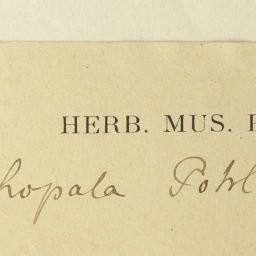 HERB. MUS. P
hopala Pohl